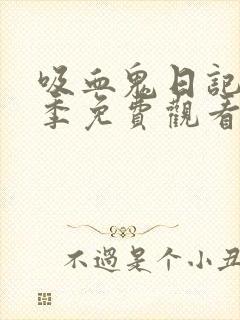 吸血鬼日記
季免費觀看
不過是个小丑